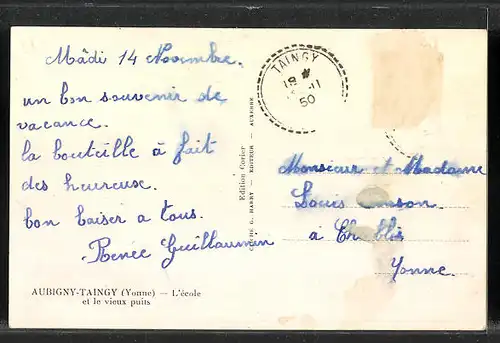 Mâdi 14 Novembre.
un bon souvenir de
vacance.
la bouteille à fait
des heureuse.
bon baiser a tous.
Renée Guillaumin
AUBIGNY-TAINGY (Yonne) — L'école
et le vieux puits
Edition Carlier
CLICHÉ G. HAMRY - EDITEUR - AUXERRE
TAINGY
18
11
50
Monsieur et Madame
Louis
à Chablis
Yonne.